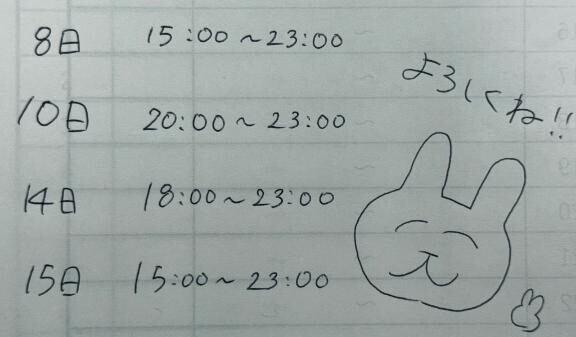 8日 15:00~23:00
よろしくね!!
10日 20:00~23:00
14日 18:00~23:00
15日 15:00~23:00